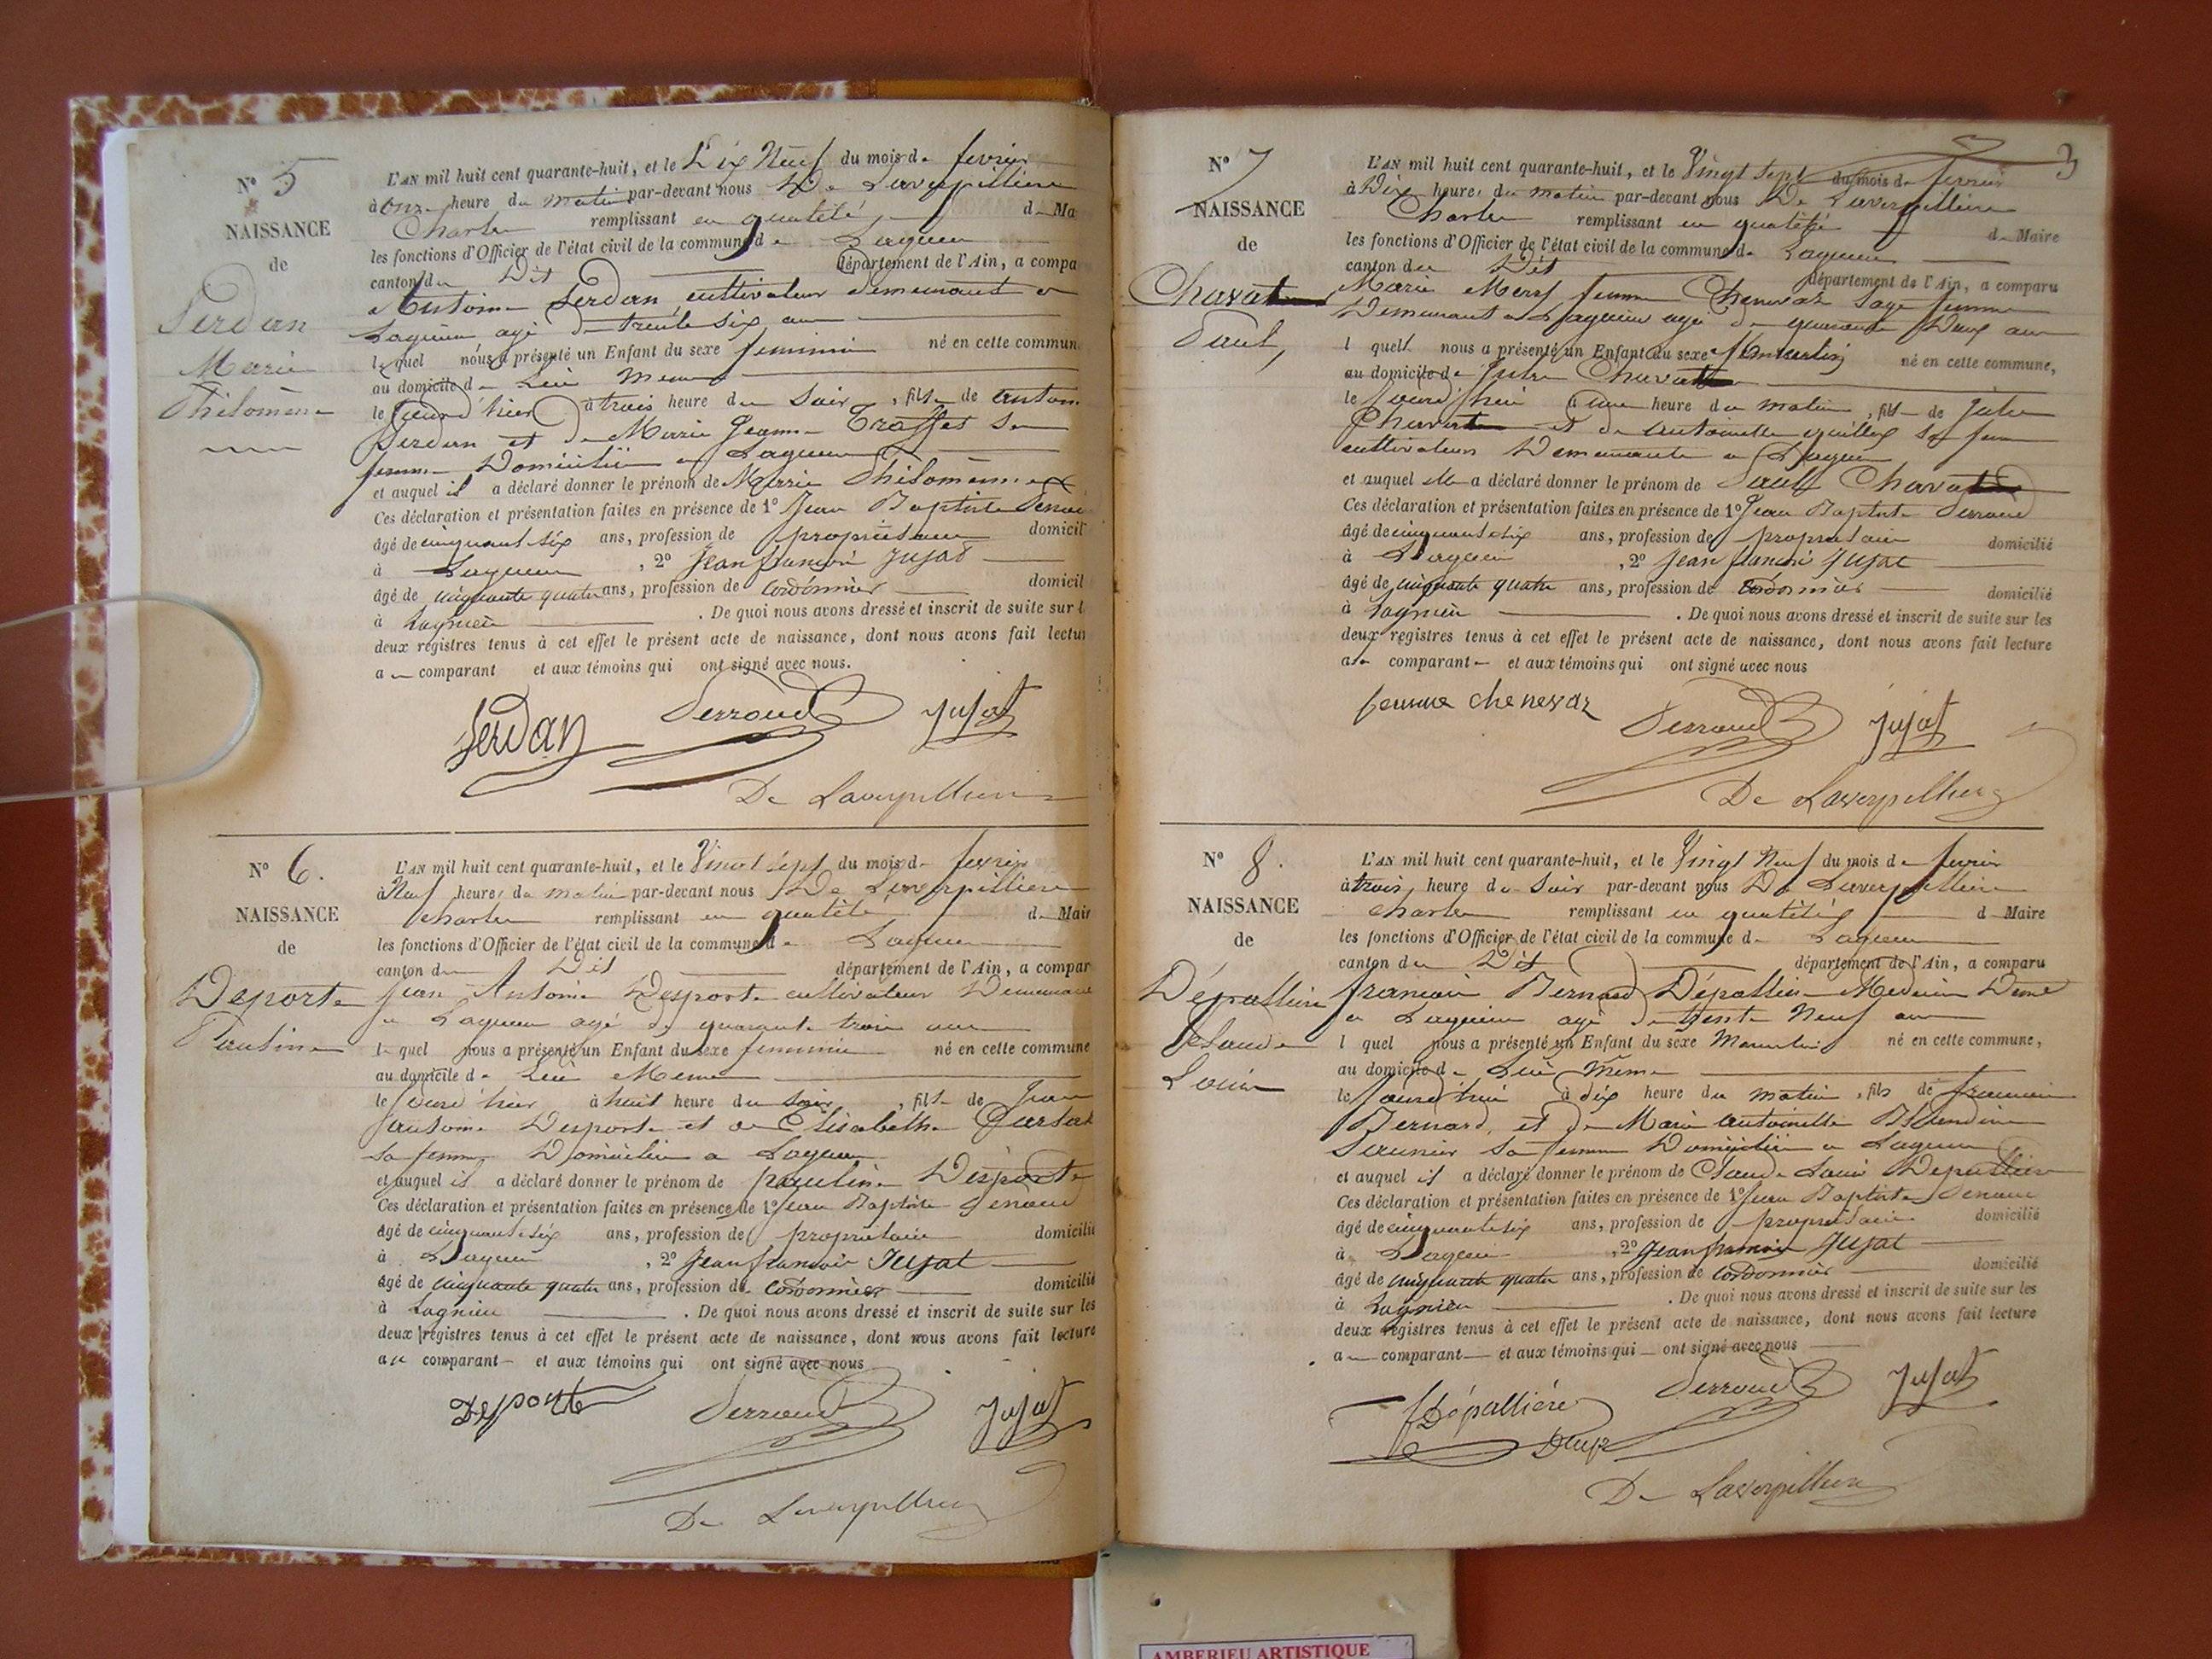 N° 5
NAISSANCE
de
Serdan
Marie
Philomène
L'AN mil huit cent quarante-huit, et le Dix Neuf du mois de fevrier
à onze heure du matin par-devant nous De Laverpilliere
Charles remplissant en qualité d Ma
les fonctions d'Officier de l'état civil de la commune de Lagnieu
canton du Dit département de l'Ain, a compa
Antoine Serdan cultivateur demeurant a
Lagnieu agé de trente six ans
lequel nous a présenté un Enfant du sexe feminin né en cette commun
au domicile de Lui meme
le jourd'hier à trois heure du soir, fille de antoin
Serdan et de Marie Jeanne Sa
femme Domicilié a Lagnieu
et auquel il a déclaré donner le prénom de Marie Philomene
Ces déclaration et présentation faites en présence de 1° Jean Baptiste Serrou
âgé de cinquante six ans, profession de propriétaire domicil
à Lagnieu, 2° Jean françois Jujat
âgé de cinquante quatre ans, profession de cordonnier domicil
à Lagnieu. De quoi nous avons dressé et inscrit de suite sur l
deux registres tenus à cet effet le présent acte de naissance, dont nous avons fait lectur
au comparant et aux témoins qui ont signé avec nous.
Serdan Serroud Jujat
De Laverpilliere
N° 6.
NAISSANCE
de
Deporte
Pauline
L'AN mil huit cent quarante-huit, et le Vingt sept du mois de fevrier
à Neuf heures du matin par-devant nous De Laverpilliere
Charles remplissant en qualité d Mair
les fonctions d'Officier de l'état civil de la commune de Lagnieu
canton du Dit département de l'Ain, a compar
Jean Antoine Desporte cultivateur Demeurant
a Lagnieu agé de quarante trois ans
lequel nous a présenté un Enfant du sexe feminin né en cette commune
au domicile de Lui Meme
le jourd'hier à huit heure du soir, fille de Jean
antoine Desporte et de Elisabeth
sa femme Domicilié a Lagnieu
et auquel il a déclaré donner le prénom de pauline Desporte
Ces déclaration et présentation faites en présence de 1° Jean Baptiste Serroud
âgé de cinquante six ans, profession de propriétaire domicilié
à Lagnieu, 2° Jean francois Jujat
âgé de cinquante quatre ans, profession de cordonnier domicilié
à Lagnieu. De quoi nous avons dressé et inscrit de suite sur les
deux registres tenus à cet effet le présent acte de naissance, dont nous avons fait lecture
au comparant et aux témoins qui ont signé avec nous
Desporte Serroud Jujat
De Laverpilliere
3
N° 7
NAISSANCE
de
Chavat
Paul
L'AN mil huit cent quarante-huit, et le Vingt sept du mois de fevrier
à Dix heures du matin par-devant nous De Laverpilliere
Charles remplissant en qualité de Maire
les fonctions d'Officier de l'état civil de la commune de Lagnieu
canton du Dit département de l'Ain, a comparu
Marie femme Chenevaz Sage femme
Demeurant a Lagnieu agé de quarante Deux ans
l quell nous a présenté un Enfant du sexe Masculin né en cette commune,
au domicile de Jules Chavat
le jourd'hui à une heure du matin, fils de Jules
Chavat et de Antoinette sa femme
cultivateurs Demeurants a Lagnieu
et auquel elle a déclaré donner le prénom de Paul Chavat
Ces déclaration et présentation faites en présence de 1° Jean Baptiste Serroud
âgé de cinquante six ans, profession de propriétaire domicilié
à Lagnieu, 2° Jean francois Jujat
âgé de cinquante quatre ans, profession de cordonnier domicilié
à Lagnieu. De quoi nous avons dressé et inscrit de suite sur les
deux registres tenus à cet effet le présent acte de naissance, dont nous avons fait lecture
a la comparante et aux témoins qui ont signé avec nous
femme chenevaz Serroud Jujat
De Laverpilliere
N° 8.
NAISSANCE
de
Dépallière
Claude
Louis
L'AN mil huit cent quarante-huit, et le Vingt Neuf du mois de fevrier
à trois heure du soir par-devant nous De Laverpilliere
Charles remplissant en qualité d Maire
les fonctions d'Officier de l'état civil de la commune de Lagnieu
canton du Dit département de l'Ain, a comparu
francois Bernard Dépallier Medecin Demt
a Lagnieu agé de trente Neuf ans
l quel nous a présenté un Enfant du sexe Masculin né en cette commune,
au domicile de Lui Même
le jourd'hui à dix heure du matin, fils de francois
Bernard et de Marie Antoinette Blandine
Saunier sa femme Domicilié a Lagnieu
et auquel il a déclaré donner le prénom de Claude Louis Depalliere
Ces déclaration et présentation faites en présence de 1° Jean Baptiste Serroud
âgé de cinquante six ans, profession de propriétaire domicilié
à Lagnieu, 2° Jean francois Jujat
âgé de cinquante quatre ans, profession de cordonnier domicilié
à Lagnieu. De quoi nous avons dressé et inscrit de suite sur les
deux registres tenus à cet effet le présent acte de naissance, dont nous avons fait lecture
au comparant et aux témoins qui ont signé avec nous
Dépallière Serroud Jujat
De Laverpilliere
AMBERIEU ARTISTIQUE